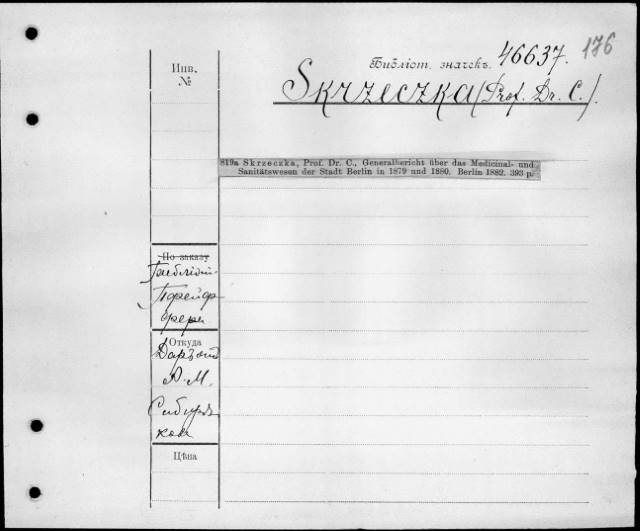 Библіот. значекъ 46637. 176
Инв.
№
Skrzeczka (Prof. Dr. C.).
819a Skrzeczka, Prof. Dr. C., Generalbericht über das Medicinal- und
Sanitätswesen der Stadt Berlin in 1879 und 1880. Berlin 1882. 393 p.
По заказу
Откуда
Даръ
А. М.
Сибиря-
кова
Цѣна